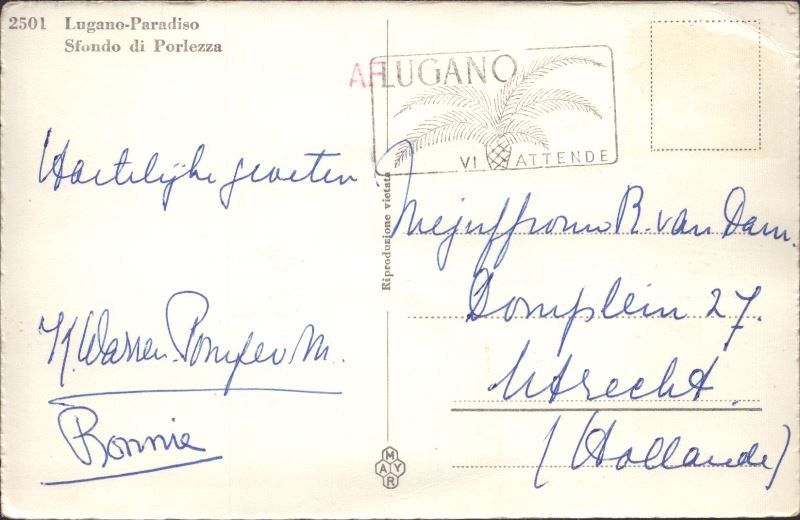 2501 Lugano-Paradiso
Sfondo di Porlezza
AF LUGANO
VI ATTENDE
Hartelijke groeten.
Bonnie
Riproduzione vietata
MAYR
Mejuffrouw R. van Dam.
Domplein 27.
Utrecht.
(Hollande)